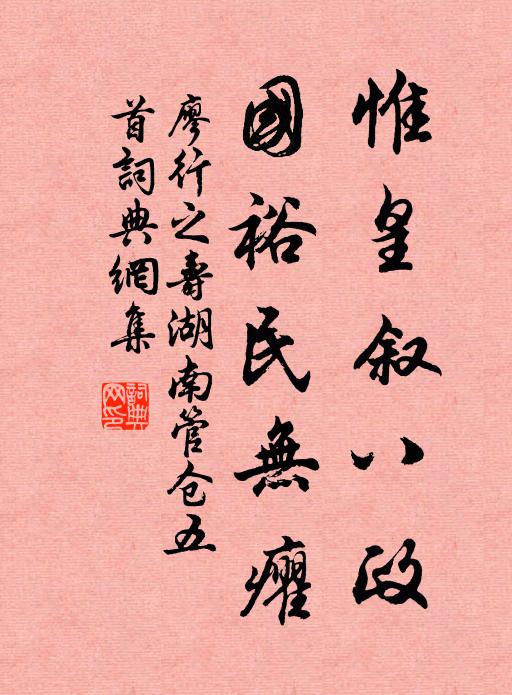 惟皇叙八政
國裕民無癯
廖行之壽湖南管仓五
首詞典網集
詞典網印